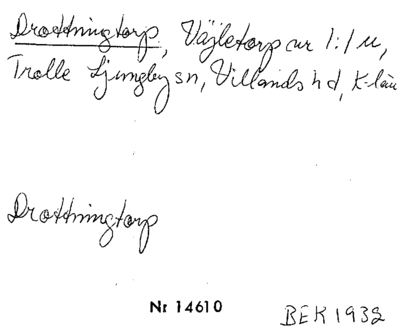 Drottningtorp, Väjletorp nr 1:1 u,
Trolle Ljungby sn, Villands hd, K-län
Drottningtorp
Nr 14610
BEK 1932